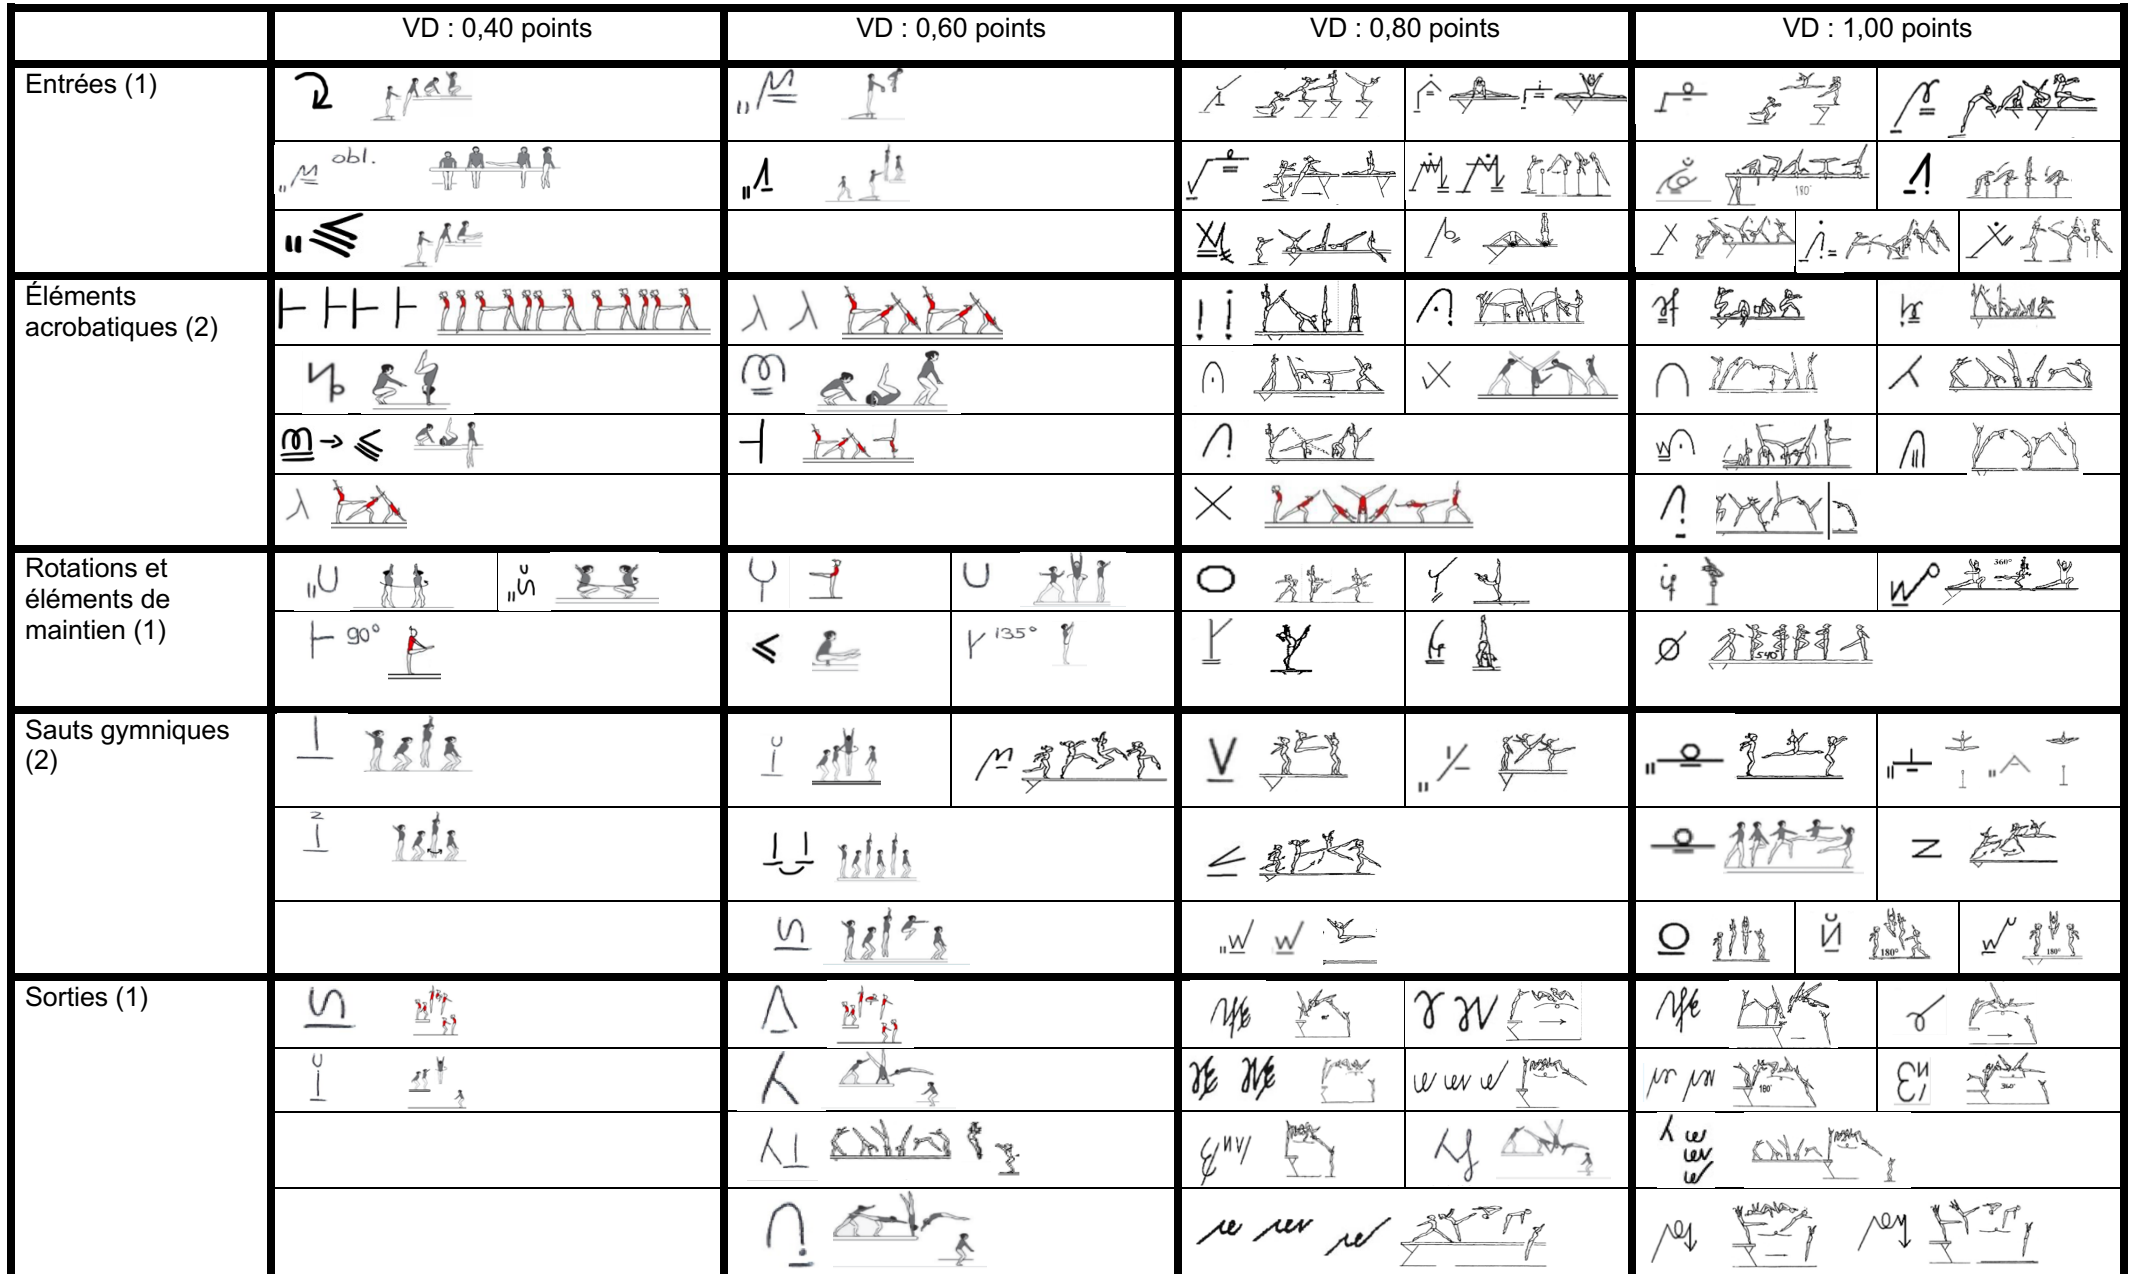 VD : 0,40 points
VD : 0,60 points
VD : 0,80 points
VD : 1,00 points
Entrées (1)
obl.
180°
Éléments
acrobatiques (2)
Rotations et
éléments de
maintien (1)
360°
90°
135°
540°
Sauts gymniques
(2)
180°
180°
Sorties (1)
180°
360°